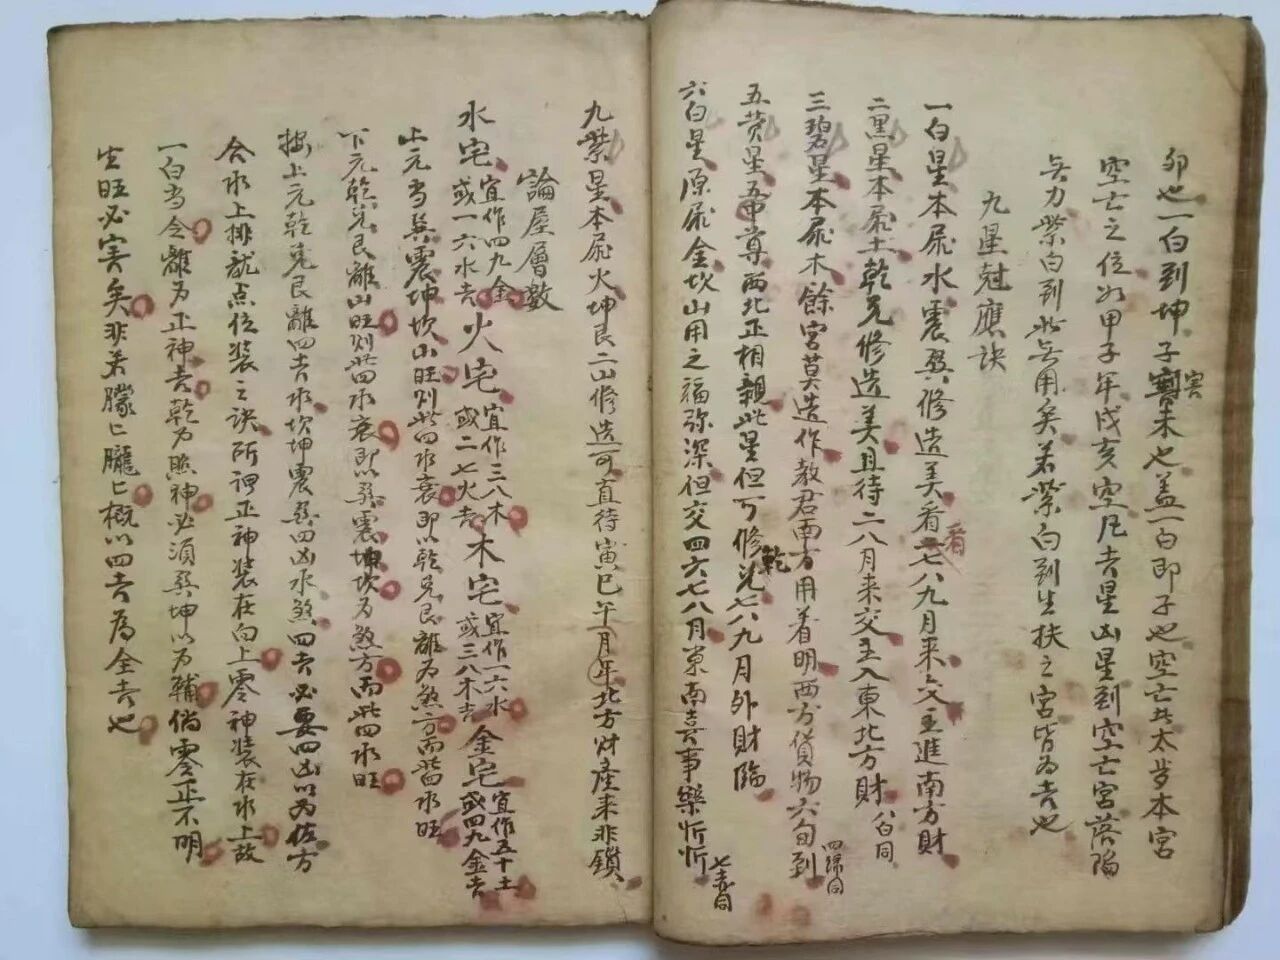 卯也一白到坤子害未也盖一白即子也空亡者太岁本宮
空亡之位如甲子年戌亥空凡吉星凶星到空亡宮落陷
无力紫白到此无用矣若紫白到生扶之宮皆为吉也
九星尅應訣
一白星本属水震巽修造美看七八九月来交主進南方財
二黒星本属土乾兑修造美且待二八月来交主入東北方財 八白同
三碧星本属木餘宮莫造作教君南方用着明西方貨物六旬到 四綠同
五黄星五帝尊西北正相親此星但可修乾兑七八九月外財臨
六白星原属金坎山用之福弥深但交四六七八月東南吉事樂忻忻 七赤同
九紫星本属火坤艮二山修造可直待寅巳午月年北方財產来非鎖
論屋層数
水宅宜作四九金或一六水吉 火宅宜作三八木或二七火吉 木宅宜作一六水或三八木吉 金宅宜作五十土或四九金吉
上元当巽震坤坎山旺则此四水衰即以乾兑艮離为煞方而此四水旺
下元乾兑艮離山旺则此四水衰即以巽震坤坎为煞方而此四水旺
按上元乾兑艮離四吉水坎坤震巽四凶水煞四吉必要四凶以为佐方
合水上排龍点位装之訣所謂正神装在向上零神装在水上故
一白当令離为正神吉乾为照神必須巽坤以为輔倘零正不明
生旺必害矣非若朦匕朧匕概以四吉為全吉也